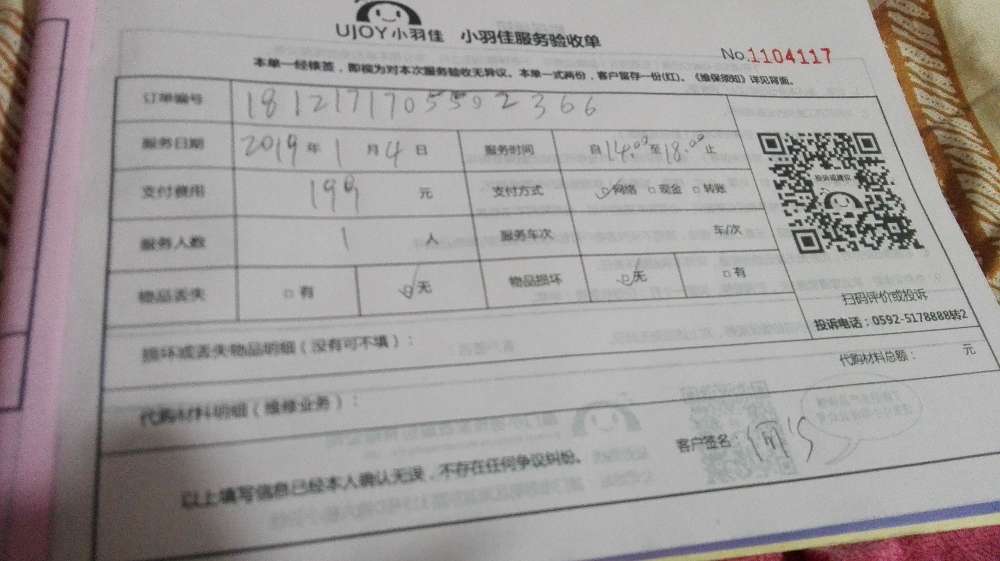 UJOY小羽佳 小羽佳服务验收单
No.1104117
本单一经核签，即视为对本次服务验收无异议。本单一式两份，客户留存一份(红)。《维保须知》详见背面。
订单编号 18121717055902366
服务日期 2019年1月4日 服务时间 自14:00至18:00止
投诉或建议
支付费用 199元 支付方式 ☑网络 □现金 □转账
服务人数 1人 服务车次 车/次
物品丢失 □有 ☑无 物品损坏 ☑无 □有
扫码评价或投诉
投诉电话：0592-5178888转2
损坏或丢失物品明细（没有可不填）：
代购材料明细（维修业务）： 代购材料总额： 元
以上填写信息已经本人确认无误，不存在任何争议纠纷。 客户签名：